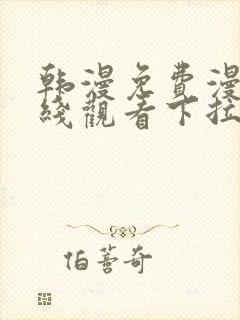 韩漫免費漫
綫觀看下拉
伯蕾奇